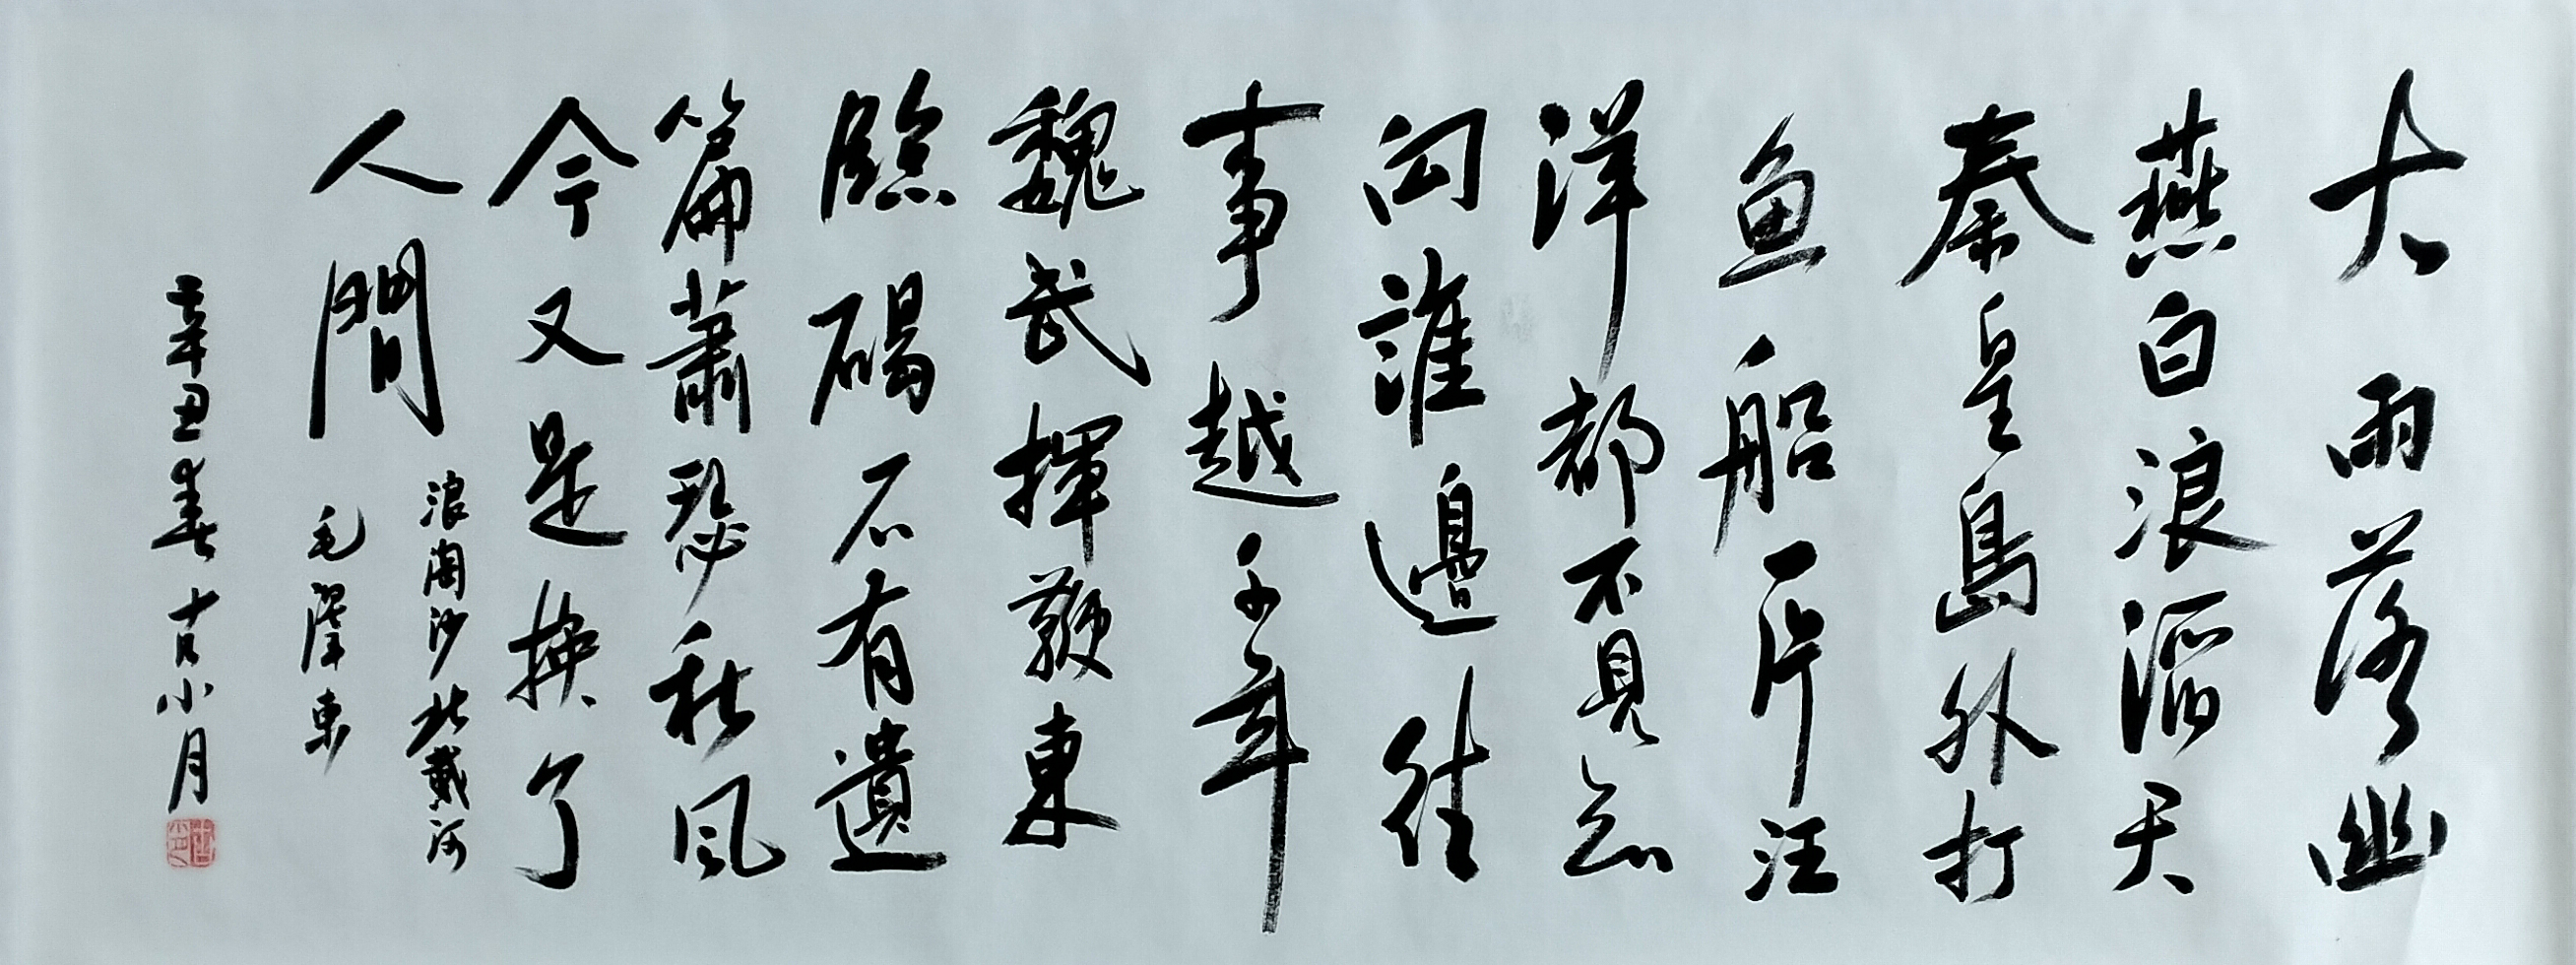 大雨落幽
燕白浪滔天
秦皇島外打
鱼船一片汪
洋都不見知
向誰邊往
事越千年
魏武揮鞭東
臨碣石有遺
篇蕭瑟秋風
今又是換了
人間
浪淘沙北戴河
毛澤東
辛丑春小月